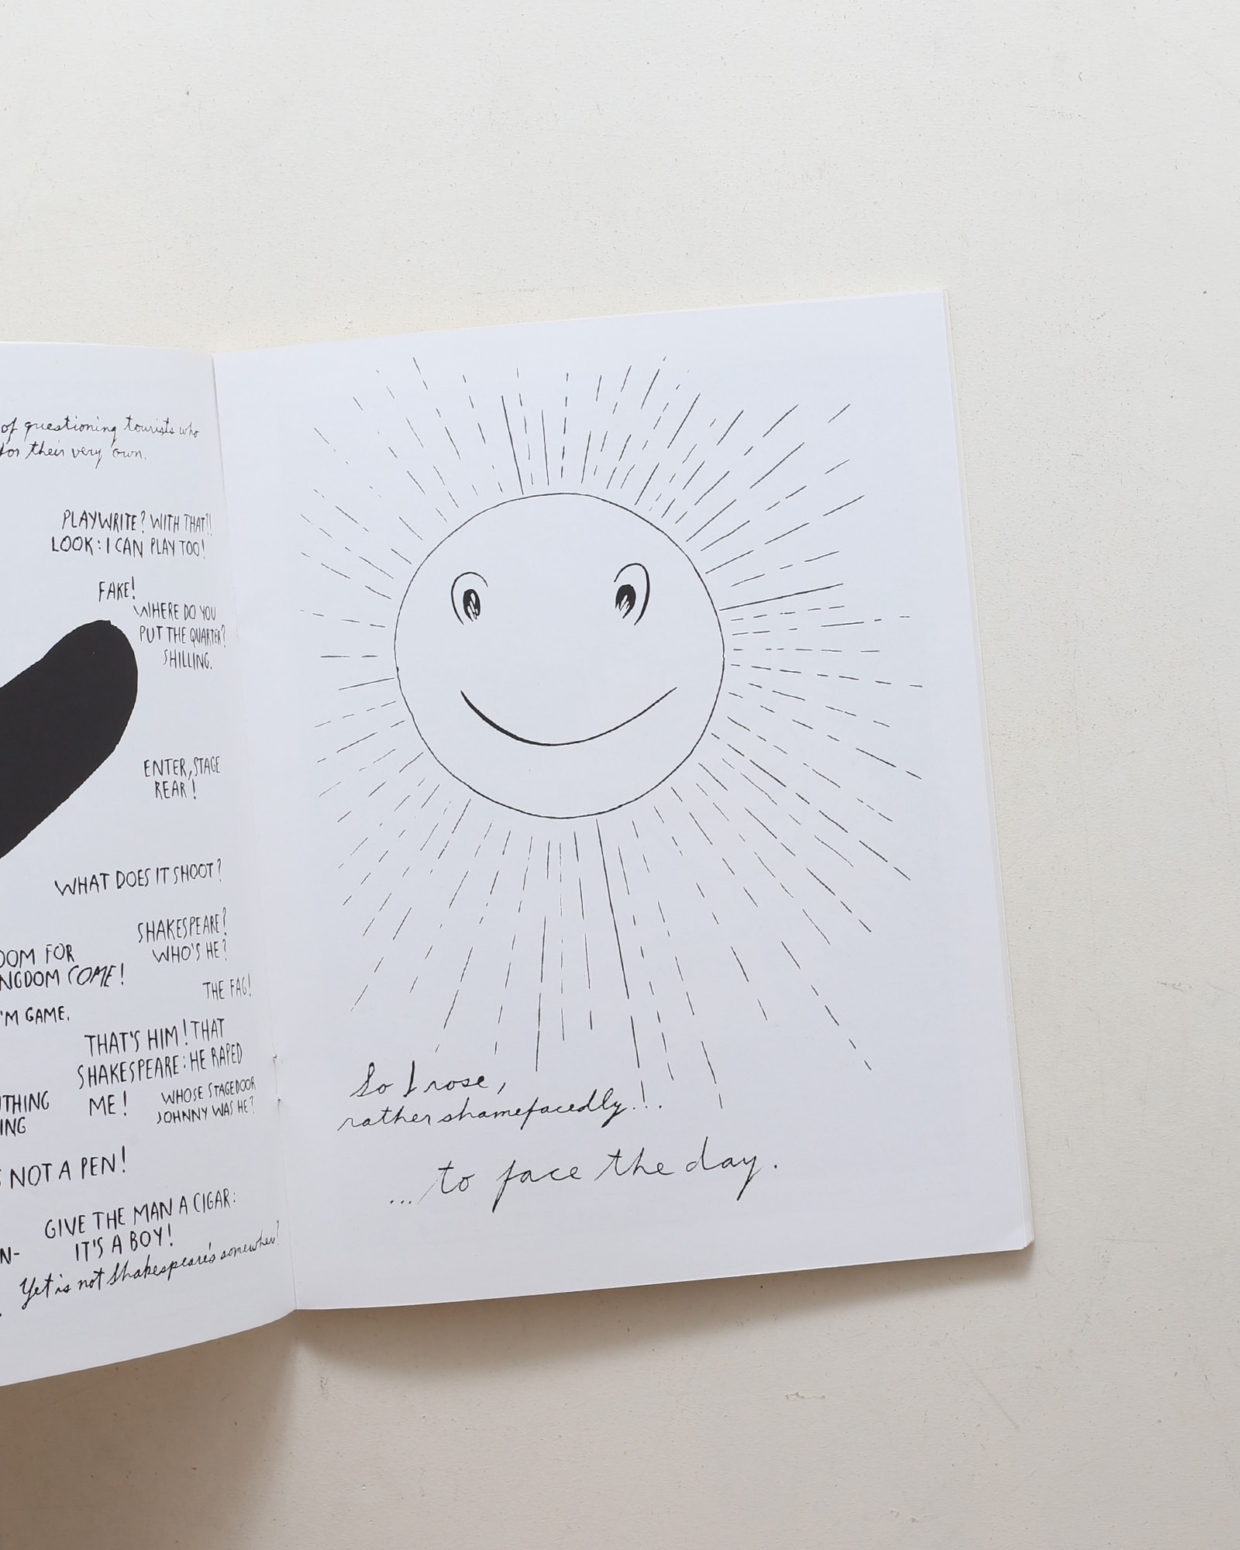 of questioning tourists who
for their very own.
PLAYWRITE? WITH THAT?!
LOOK: I CAN PLAY TOO!
FAKE!
WHERE DO YOU
PUT THE QUARTER?
SHILLING.
ENTER, STAGE
REAR!
WHAT DOES IT SHOOT?
SHAKESPEARE?
WHO'S HE?
OOM FOR
NGDOM COME!
THE FAG!
'M GAME.
THAT'S HIM! THAT
SHAKESPEARE: HE RAPED
ME!
WHOSE STAGEDOOR
JOHNNY WAS HE?
THING
ING
S NOT A PEN!
GIVE THE MAN A CIGAR:
IT'S A BOY!
N-
Yet is not Shakespeare's somewhen?
So I rose,
rather shamefacedly...
... to face the day.